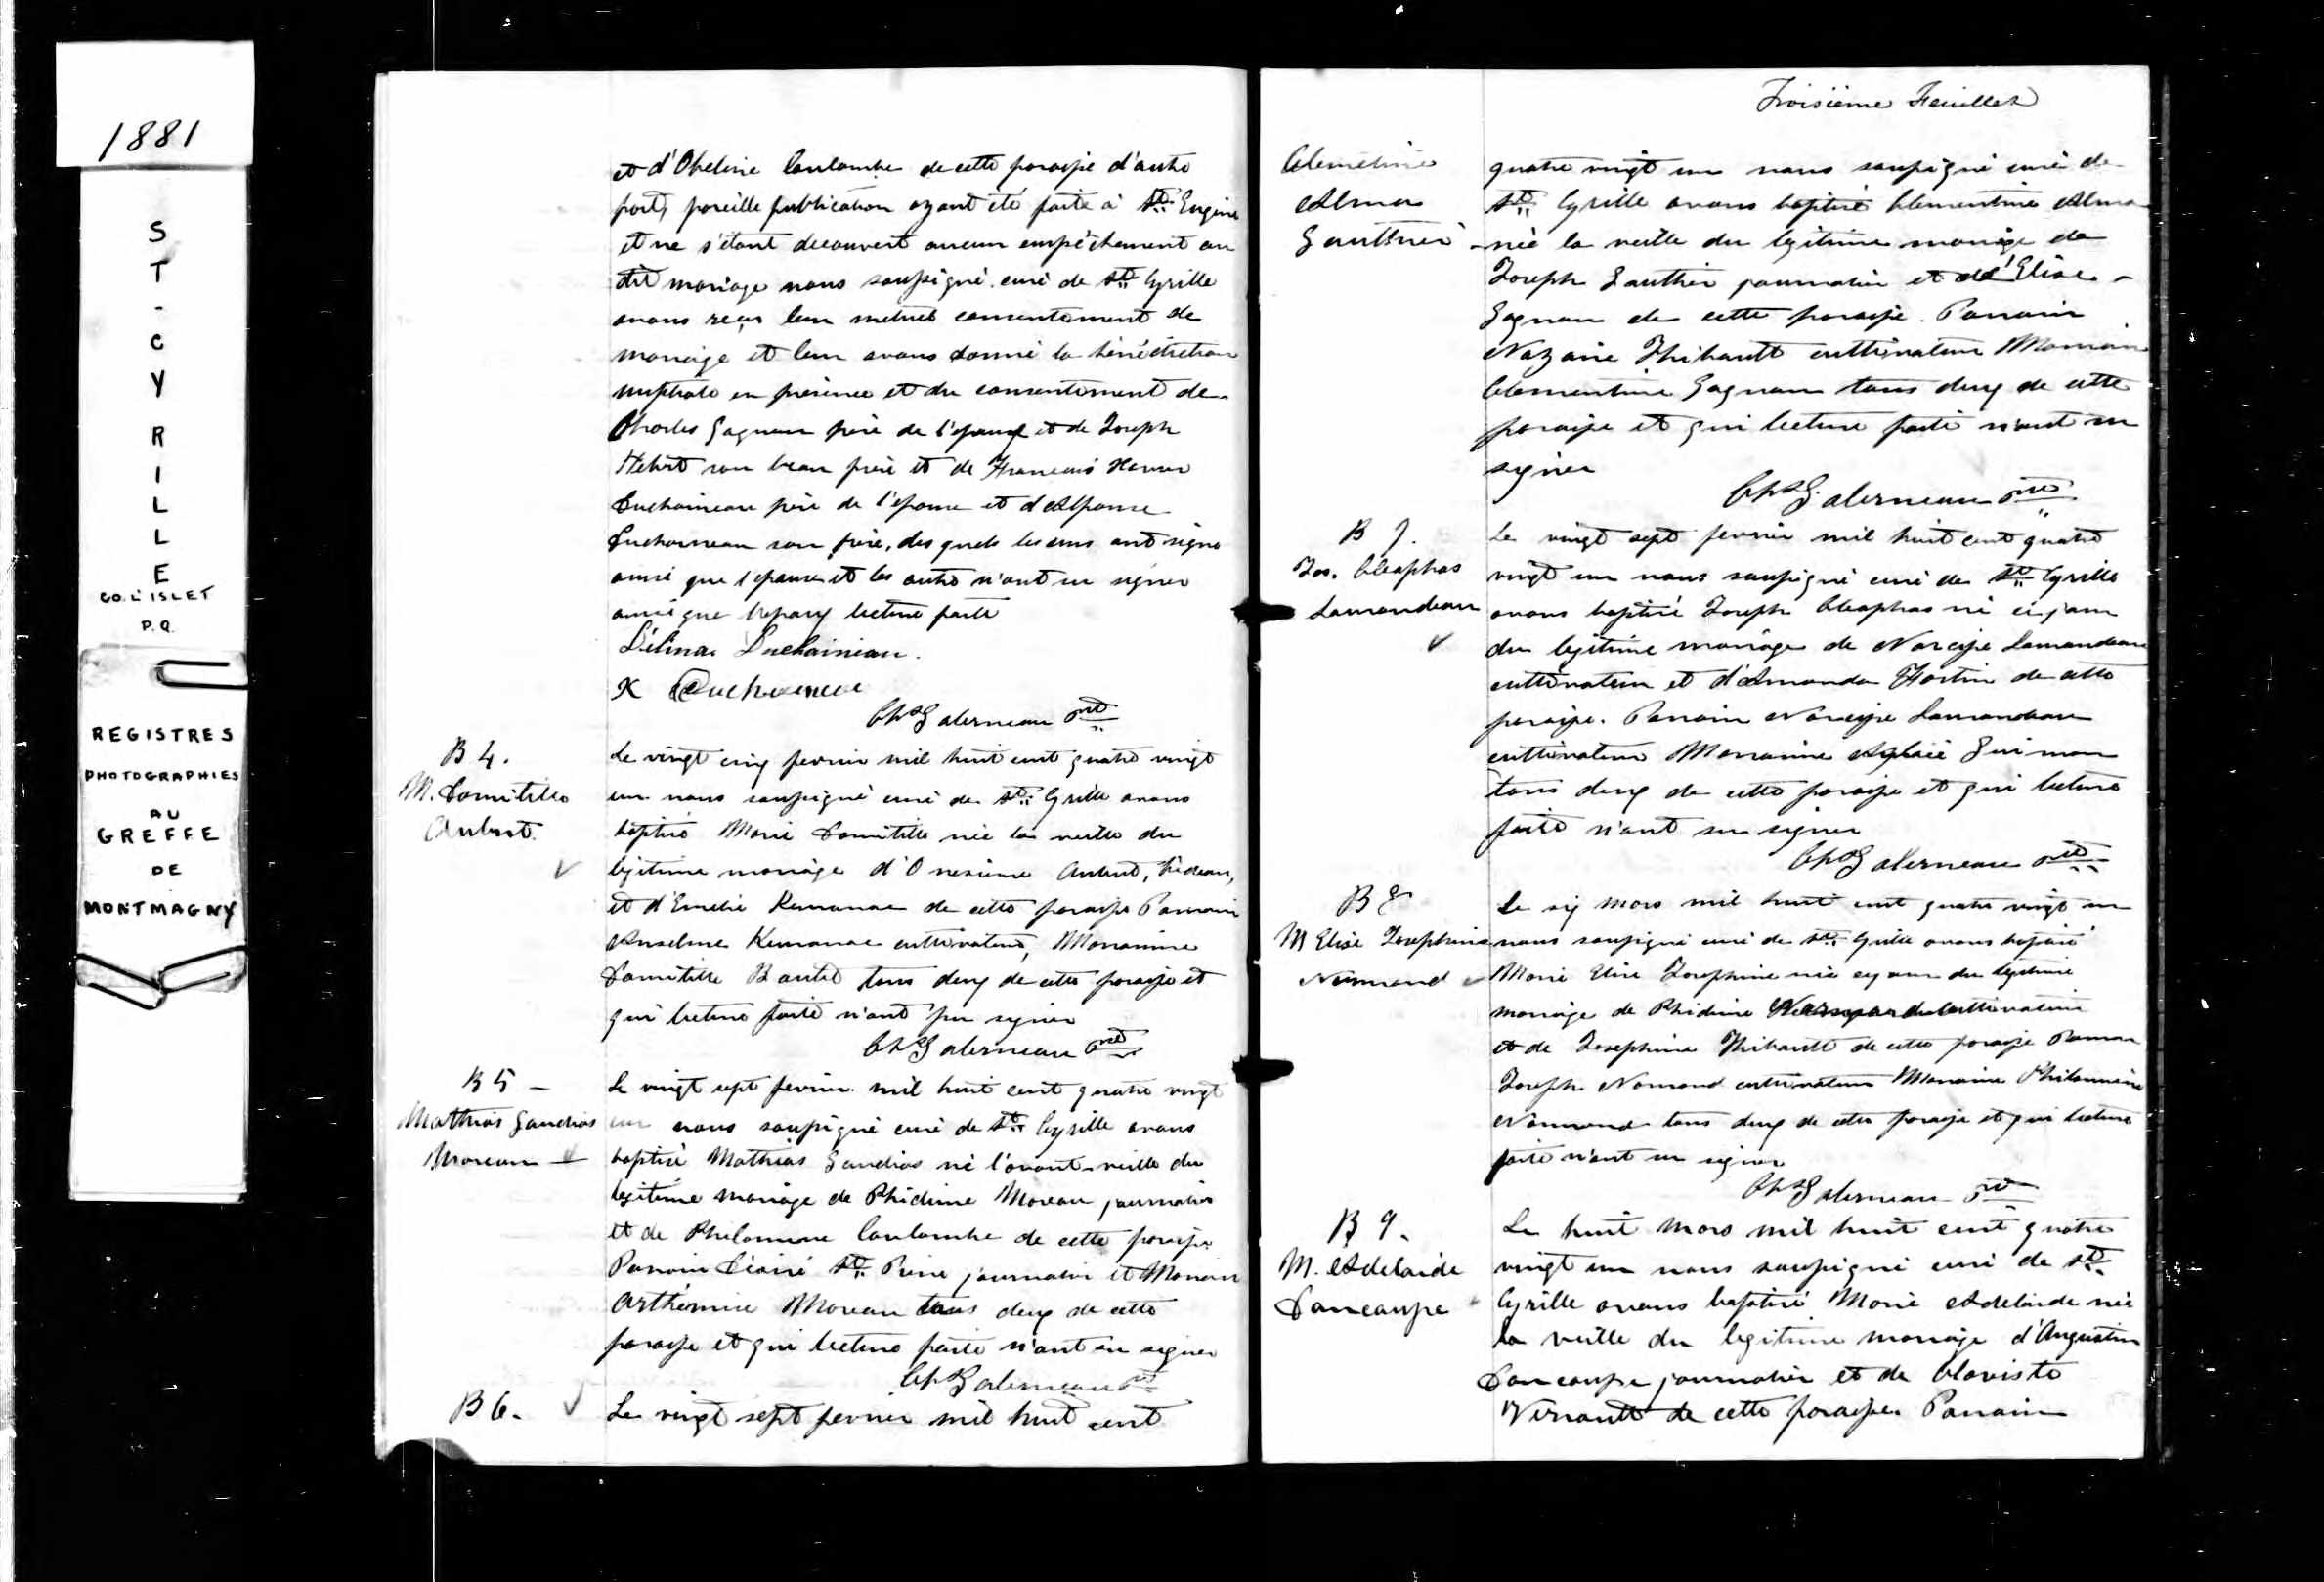 1881
ST-CYRILLE
CO. L'ISLET
P.Q.
REGISTRES
PHOTOGRAPHIES
AU
GREFFE
DE
MONTMAGNY
et d'Obeline Coulombe de cette paroisse d'autre
part, pareille publication ayant été faite à St. Eugène
et ne s'étant decouvert aucun empêchement au
dit mariage nous soussigné curé de St. Cyrille
avons reçu leur mutuel consentement de
mariage et leur avons donné la bénédiction
nuptiale en présence et du consentement de
Charles Gagnon père de l'epoux et de Joseph
Hebert son beau frère et de François Xavier
Duchaineau père de l'epouse et d'Alphonse
Duchaineau son frère, desquels les uns ont signé
ainsi que l'epouse et les autres n'ont su signer
ainsi que l'epoux lecture faite
Délina Duchaineau.
X Duchaineau
Chs Galerneau Ptre
B 4.
M. Domitille
Aubut.
Le vingt cinq fevrier mil huit cent quatre vingt
un nous soussigné curé de St. Cyrille avons
baptisé Marie Domitille née la veille du
légitime mariage d'Onesime Aubut, bedeau,
et d'Emelie Kemanac de cette paroisse Parrain
Anselme Kemanac cultivateur, Marraine
Domitille tous deux de cette paroisse et
qui lecture faite n'ont pu signer
Chs Galerneau Ptre
B 5 -
Mathias Gaudias
Moreau -
Le vingt sept fevrier mil huit cent quatre vingt
un nous soussigné curé de St. Cyrille avons
baptisé Mathias Gaudias né l'avant-veille du
legitime mariage de Phidime Moreau journalier
et de Philomene Coulombe de cette paroisse
Parrain St. Pierre journalier et Marraine
Arthémise Moreau tous deux de cette
paroisse et qui lecture faite n'ont su signer
Chs Galerneau Ptre
B 6.
Le vingt sept fevrier mil huit cent
Troisième Feuillet
Clementine
Alma
Gauthier
quatre vingt un nous soussigné curé de
St. Cyrille avons baptisé Clementine Alma
née la veille du legitime mariage de
Joseph Gauthier journalier et d'Elise
Gagnon de cette paroisse. Parrain
Nazaire Thibault cultivateur Marraine
Clementine Gagnon tous deux de cette
paroisse et qui lecture faite n'ont su
signer
Chs G. alerneau Ptre
B 7.
Jos. Cleophas
Lamondeau
Le vingt sept fevrier mil huit cent quatre
vingt un nous soussigné curé de St. Cyrille
avons baptisé Joseph Cleophas né ce jour
du legitime mariage de Narcisse Lamondeau
cultivateur et d'Amanda Fortin de cette
paroisse. Parrain Narcisse Lamondeau
cultivateur Marraine Aglaée Guimon
tous deux de cette paroisse et qui lecture
faite n'ont su signer
Chs Galerneau Ptre
B 8
M Elise Josephine
Normand
Le six mars mil huit cent quatre vingt un
nous soussigné curé de St. Cyrille avons baptisé
Marie Elise Josephine née ce jour du legitime
mariage de Phidime Normand cultivateur
et de Josephine Thibault de cette paroisse Parrain
Joseph Normand cultivateur Marraine Philomène
Normand tous deux de cette paroisse et qui lecture
faite n'ont su signer
Chs Galerneau Ptre
B 9.
M. Adelaide
Dancause
Le huit mars mil huit cent quatre
vingt un nous soussigné curé de St.
Cyrille avons baptisé Marie Adelaide née
la veille du legitime mariage d'Augustin
Dancause journalier et de
de cette paroisse Parrain